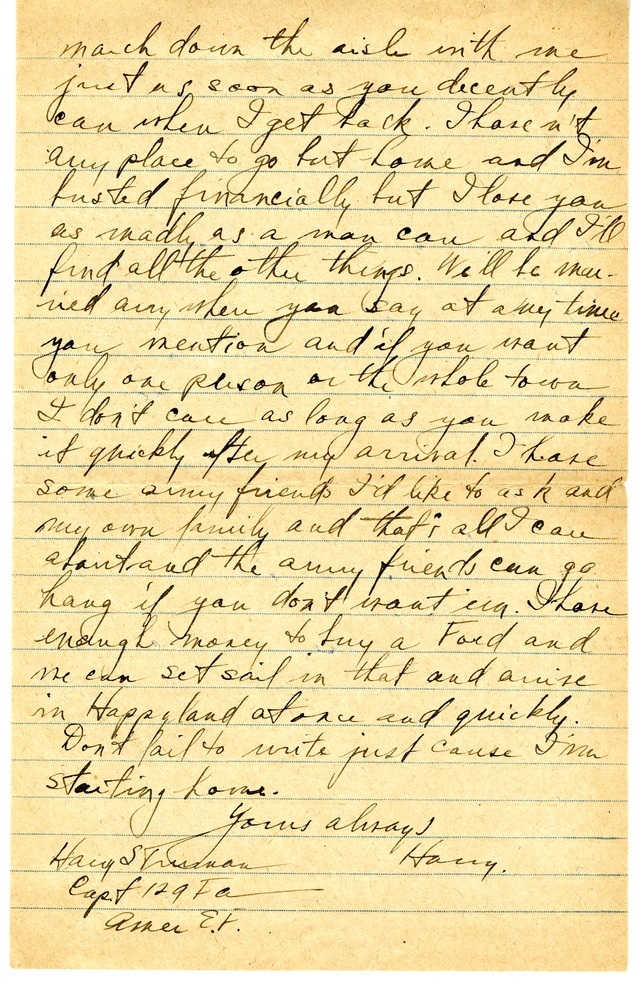 march down the aisle with me
just as soon as you decently
can when I get back. I haven't
any place to go but home and I'm
busted financially but I love you
as madly as a man can and I'll
find all the other things. We'll be mar-
ried anywhere you say at any time
you mention and if you want
only one person or the whole town
I don't care as long as you make
it quickly after my arrival. I have
some army friends I'd like to ask and
my own family and that's all I care
about and the army friends can go
hang if you don't want 'em. I have
enough money to buy a Ford and
we can set sail in that and arrive
in Happyland at once and quickly.
Don't fail to write just cause I'm
starting home.
Yours always
Harry.
Harry S Truman
Capt 129 F A
Amer E.F.